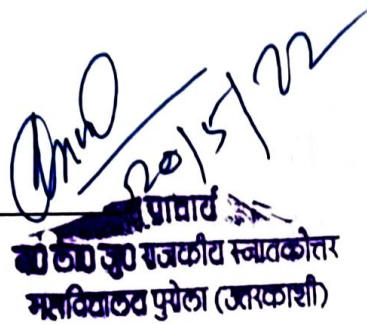 20/5/22
प्राचार्य
ब० ला० जु० राजकीय स्नातकोत्तर
महाविद्यालय पुरोला (उत्तरकाशी)